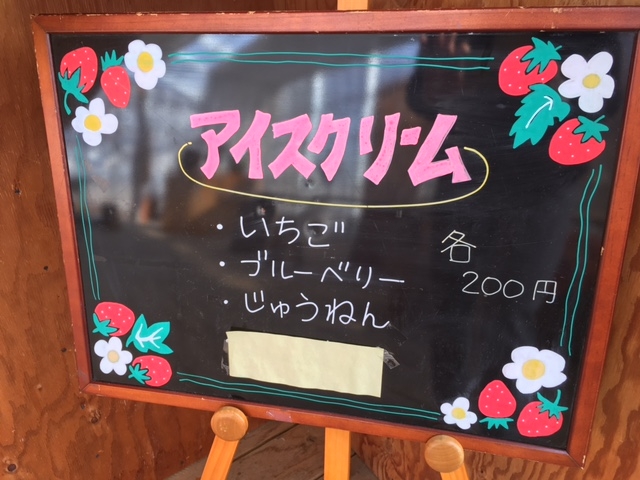 アイスクリーム
・いちご
・ブルーベリー
・じゅうねん
各
200円